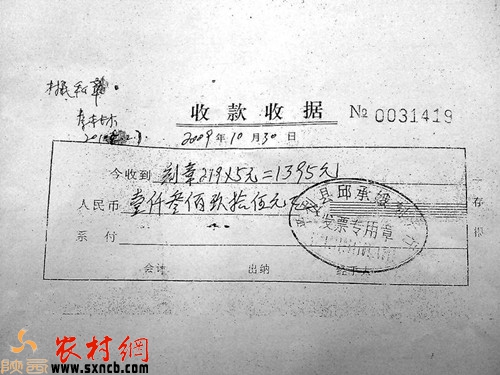 收款收据 № 0031419
2009年10月30日
今收到 刻章279×5元=1395元
人民币 壹仟叁佰玖拾伍元
系付
存
根
会计 出纳 经手人
县邱承
发票专用章
陕西
农村網
www.sxncb.com